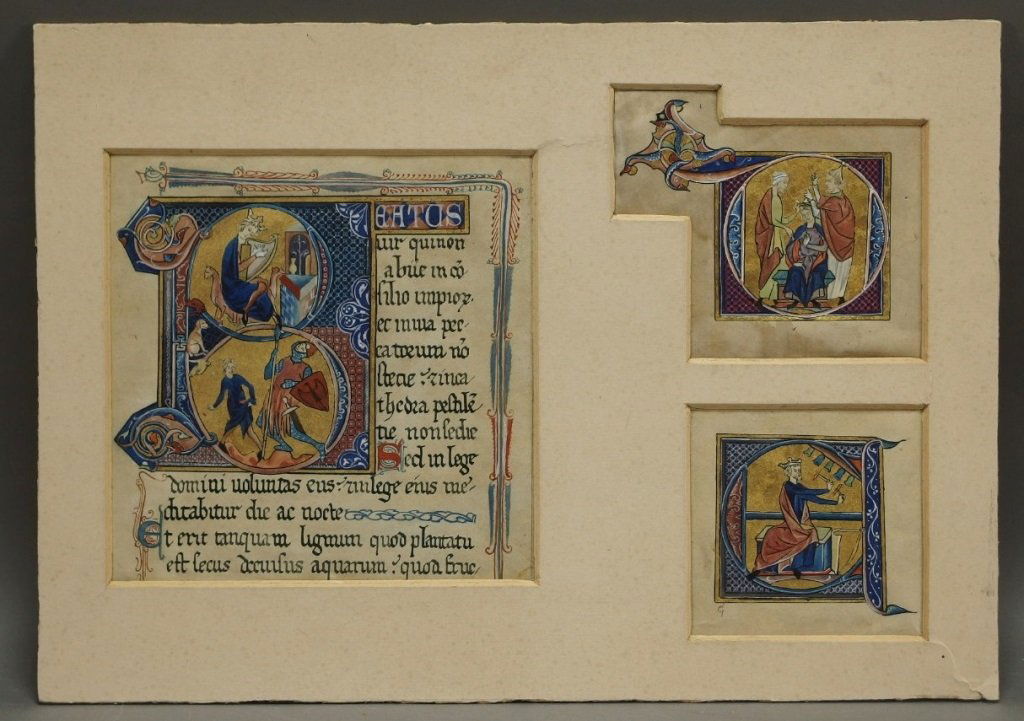 BEATUS
uir qui non
abiit in cō
silio impioꝝ.
et in uia pec-
catorum nō
stetit ⁊ in ca
thedra pestilē
tie non sedit
Sed in lege
domini uoluntas eius. ⁊ in lege eius me-
ditabitur die ac nocte
Et erit tanquam lignum quod plantatu
est secus decursus aquarum ⁊ quod fruc-
D
E
G